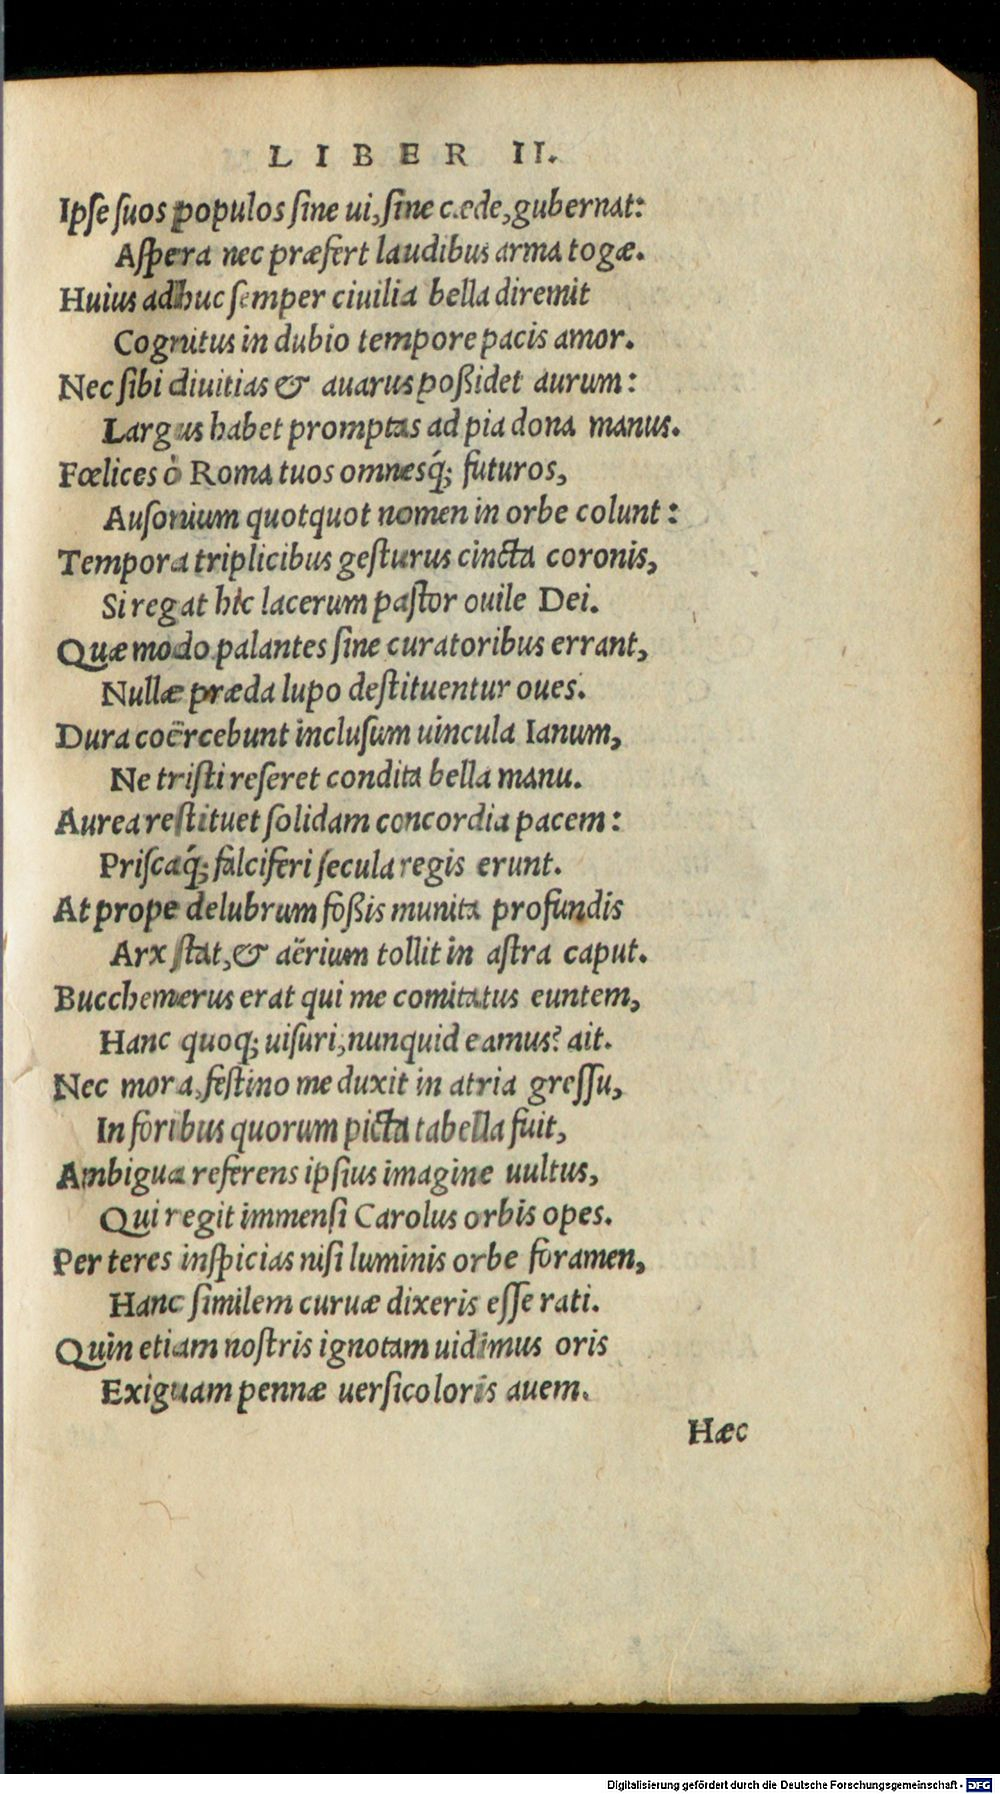 LIBER II.
Ipſe ſuos populos ſine ui, ſine cæde, gubernat:
Aſpera nec præfert laudibus arma togæ.
Huius adhuc ſemper ciuilia bella diremit
Cognitus in dubio tempore pacis amor.
Nec ſibi diuitias & auarus poßidet aurum:
Largus habet promptas ad pia dona manus.
Fœlices ò Roma tuos omnesq́; futuros,
Auſonium quotquot nomen in orbe colunt:
Tempora triplicibus geſturus cincta coronis,
Si regat hic lacerum paſtor ouile Dei.
Quæ modo palantes ſine curatoribus errant,
Nullæ præda lupo deſtituentur oues.
Dura coërcebunt incluſum uincula Ianum,
Ne triſti reſeret condita bella manu.
Aurea reſtituet ſolidam concordia pacem:
Priſcaq́; falciferi ſecula regis erunt.
At prope delubrum foßis munita profundis
Arx ſtat, & aërium tollit in aſtra caput.
Bucchemerus erat qui me comitatus euntem,
Hanc quoq; uiſuri, nunquid eamus? ait.
Nec mora, feſtino me duxit in atria greſſu,
In foribus quorum picta tabella fuit,
Ambigua referens ipſius imagine uultus,
Qui regit immenſi Carolus orbis opes.
Per teres inſpicias niſi luminis orbe foramen,
Hanc ſimilem curuæ dixeris eſſe rati.
Quin etiam noſtris ignotam uidimus oris
Exiguam pennæ uerſicoloris auem.
Hæc
Digitalisierung gefördert durch die Deutsche Forschungsgemeinschaft - DFG